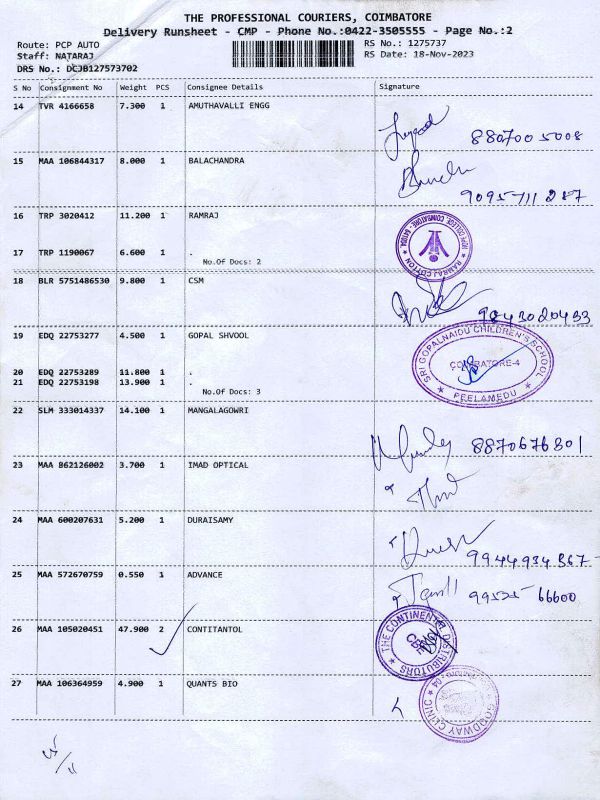 THE PROFESSIONAL COURIERS, COIMBATORE
Delivery Runsheet - CMP - Phone No.:0422-3505555 - Page No.:2
Route: PCP AUTO RS No.: 1275737
Staff: NATARAJ RS Date: 18-Nov-2023
DRS No.: DCJB127573702
S No Consignment No Weight PCS Consignee Details Signature
14 TVR 4166658 7.300 1 AMUTHAVALLI ENGG
8807005008
15 MAA 106844317 8.000 1 BALACHANDRA
9095711287
16 TRP 3020412 11.200 1 RAMRAJ
RAMRAJ COTTON
17 TRP 1190067 6.600 1 .
No.Of Docs: 2
18 BLR 5751486530 9.800 1 CSM
9843020433
19 EDQ 22753277 4.500 1 GOPAL SHVOOL
SRI GOPALNAIDU CHILDREN'S SCHOOL
COIMBATORE-4
PEELAMEDU
20 EDQ 22753289 11.800 1 .
21 EDQ 22753198 13.900 1 .
No.Of Docs: 3
22 SLM 333014337 14.100 1 MANGALAGOWRI
8870676801
23 MAA 862126002 3.700 1 IMAD OPTICAL
24 MAA 600207631 5.200 1 DURAISAMY
9944934867
25 MAA 572670759 0.550 1 ADVANCE
99525 66600
26 MAA 105020451 47.900 2 CONTITANTOL
THE CONTINENTAL DISTRIBUTORS
27 MAA 106364959 4.900 1 QUANTS BIO
GOODWAY CLINIC